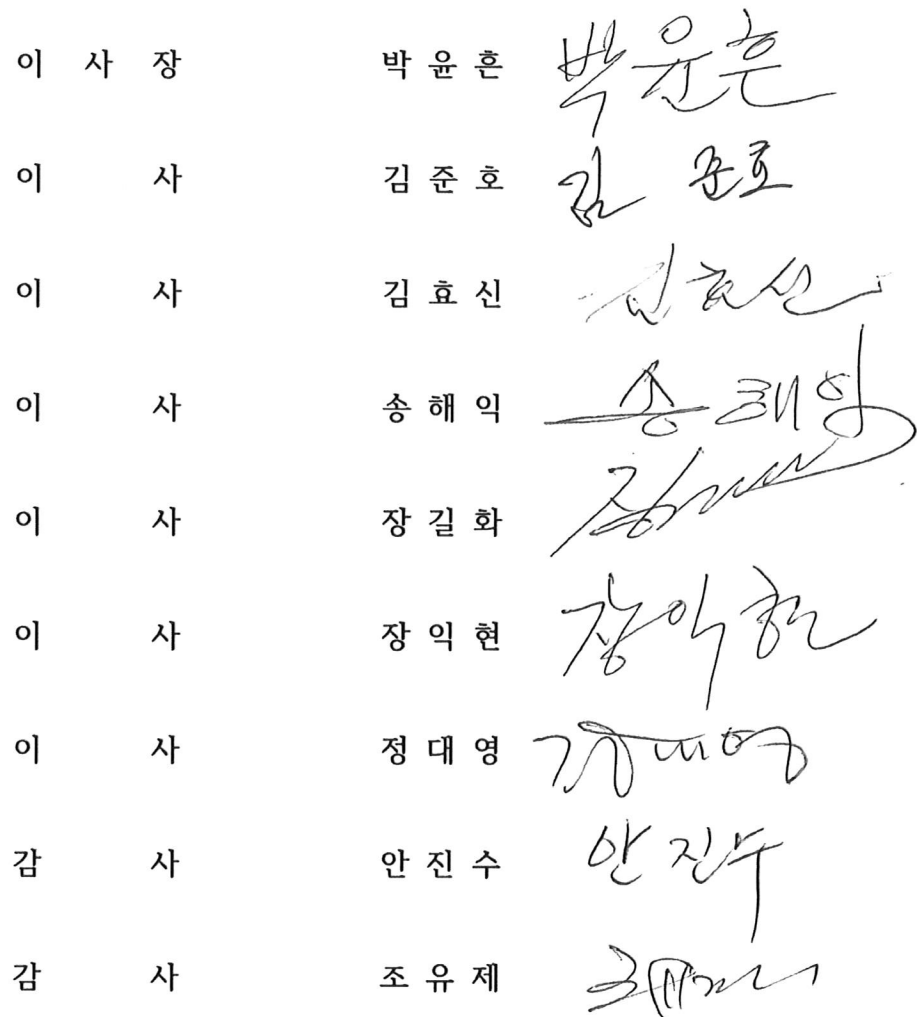 이 사 장 박 윤 흔 박윤흔
이 사 김 준 호 김 준호
이 사 김 효 신 김효신
이 사 송 해 익 송해익
이 사 장 길 화
이 사 장 익 현 장익현
이 사 정 대 영 정대영
감 사 안 진 수 안진수
감 사 조 유 제